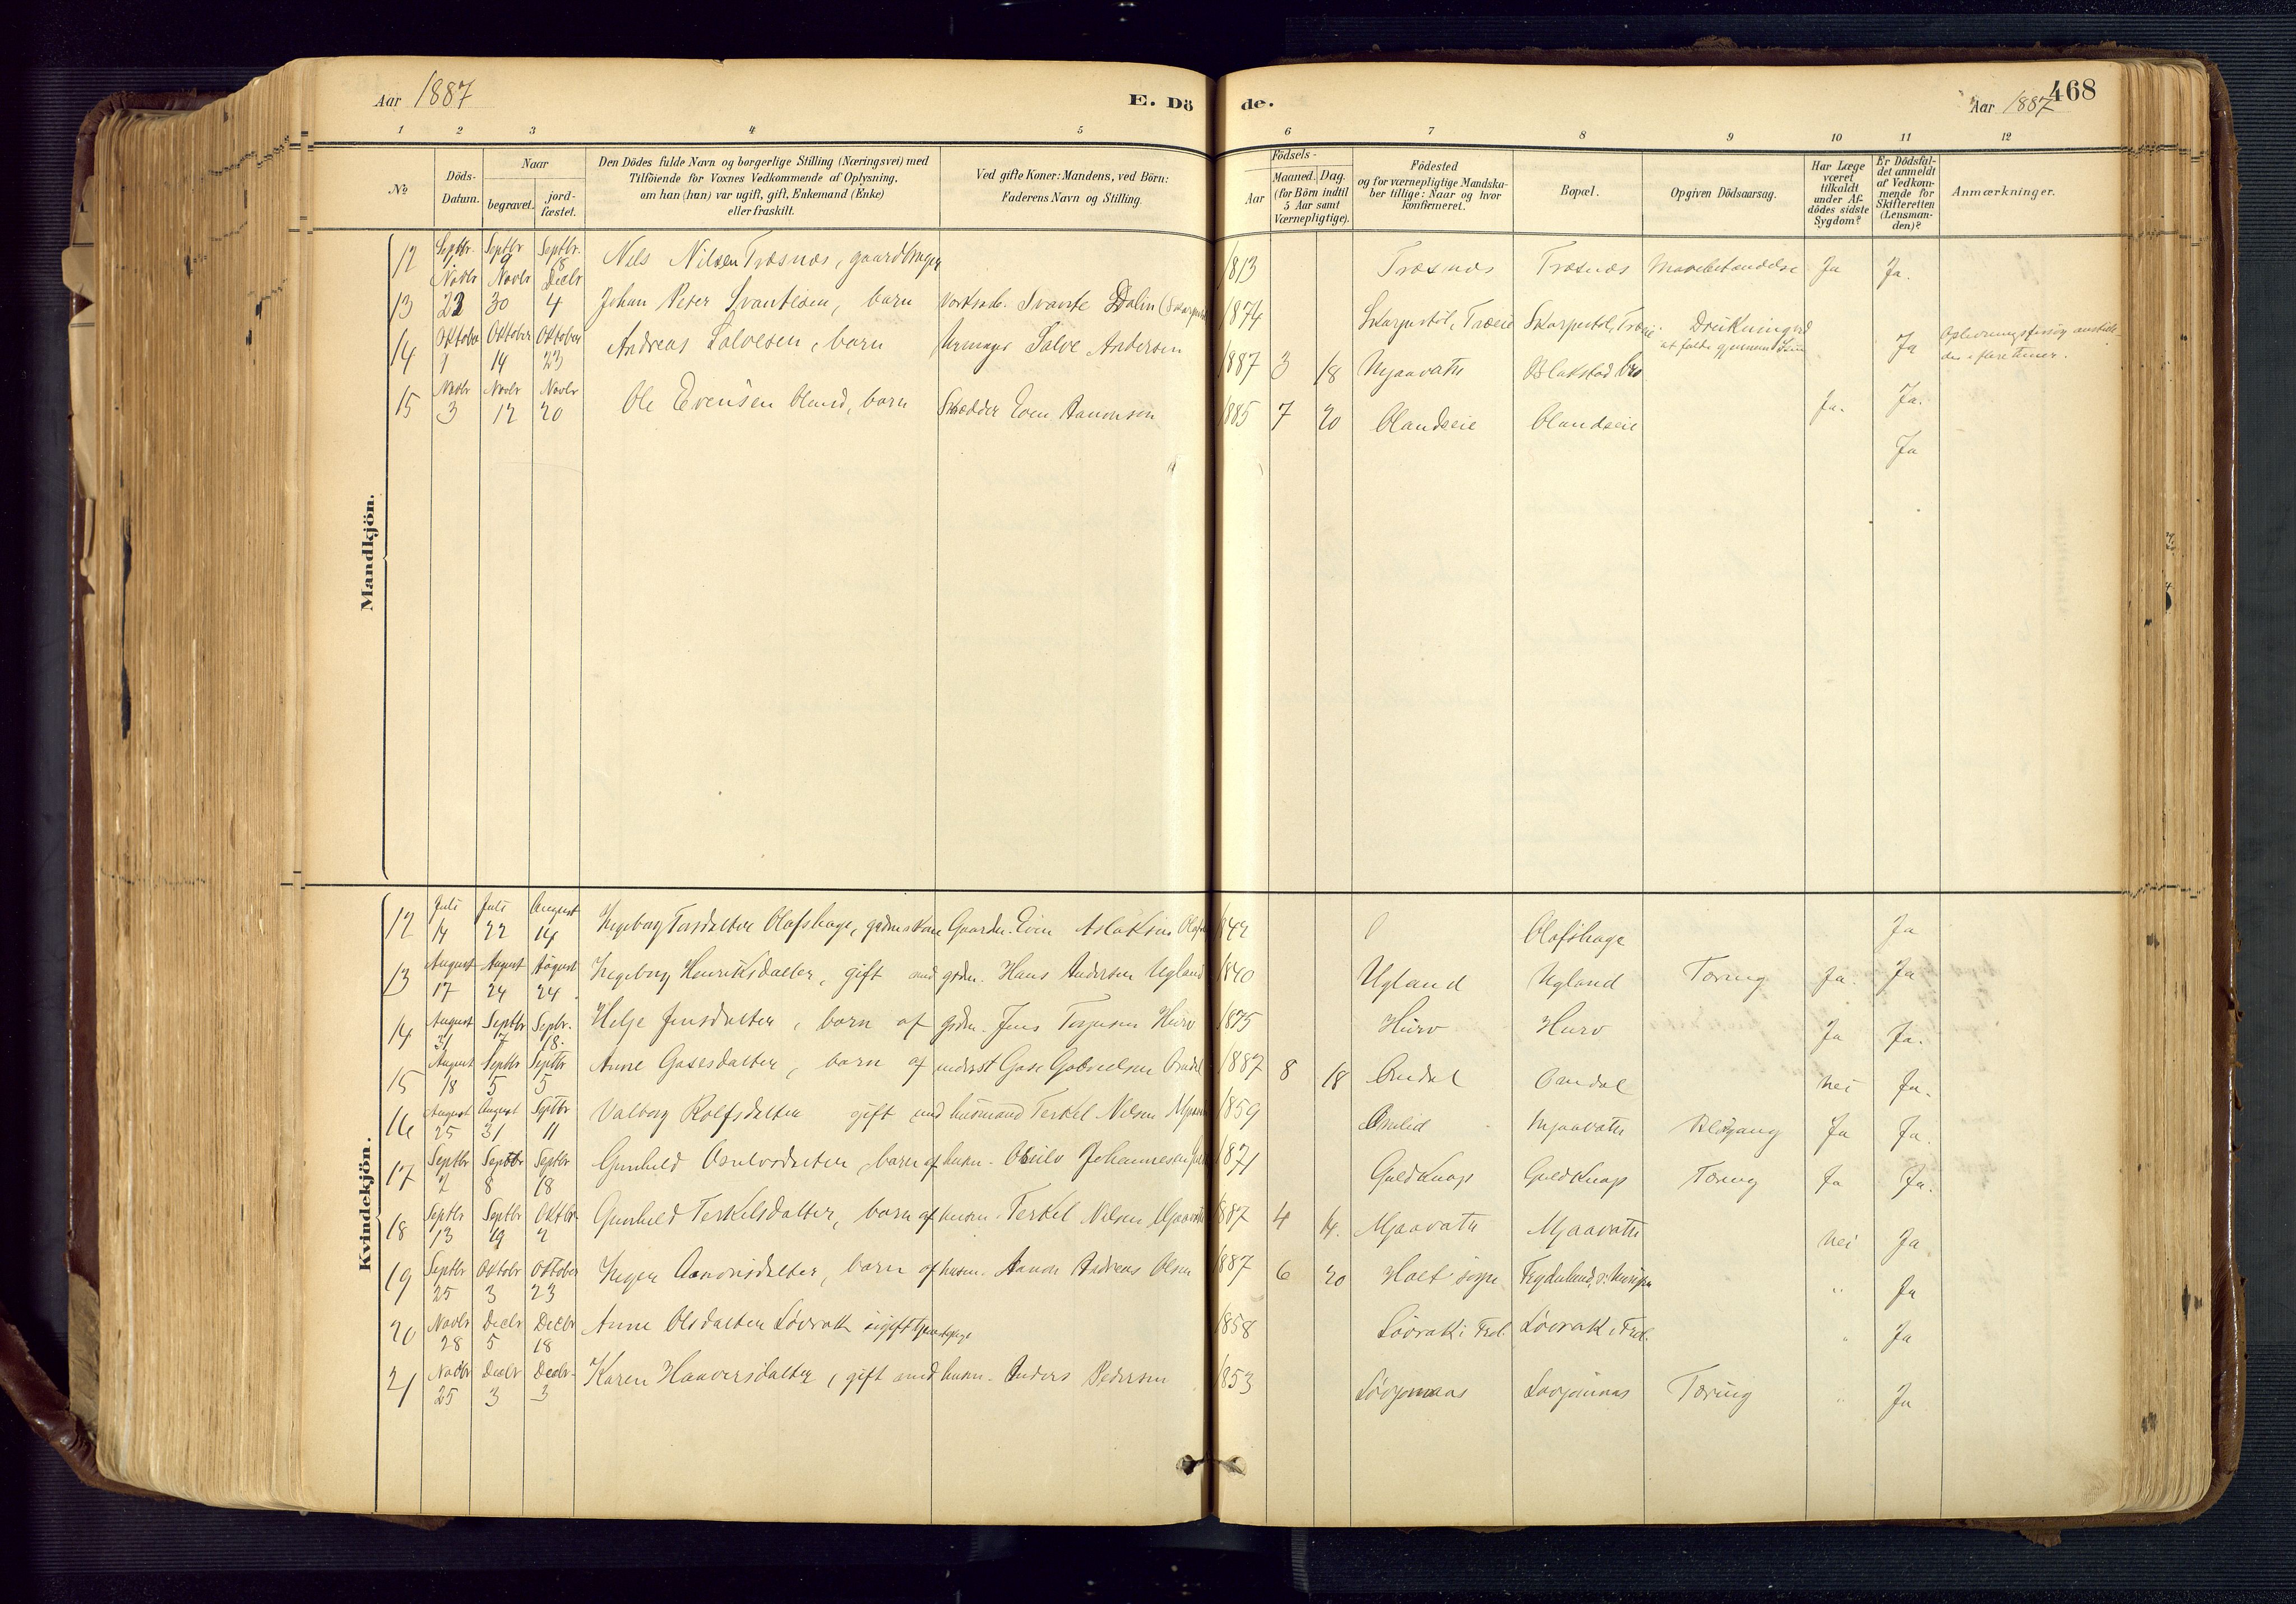 Aar 1887
E. Dö
de.
Aar 1887
468
1 2 3 4 5 6 7 8 9 10 11 12
No
Döds-
Datum.
Naar
begravet.
jord-
fæstet.
Den Dödes fulde Navn og borgerlige Stilling (Næringsvei) med
Tilföiende for Voxnes Vedkommende af Oplysning,
om han (hun) var ugift, gift, Enkemand (Enke)
eller fraskilt.
Ved gifte Koner: Mandens, ved Börn:
Faderens Navn og Stilling.
Födsels-
Aar
Maaned.
Dag.
(for Börn indtil
5 Aar samt
Værnepligtige).
Födested
og for værnepligtige Mandska-
ber tillige: Naar og hvor
konfirmeret.
Bopæl.
Opgiven Dödsaarsag.
Har Læge
været
tilkaldt
under Af-
dödes sidste
Sygdom?
Er Dödsfal-
det anmeldt
af Vedkom-
mende for
Skifteretten
(Lensman-
den)?
Anmærkninger.
Mandkjön.
12 Septbr. 1 Septbr 9 Septbr. 18 Nils Nilsen Træsnæs, gaardbruger 1813 Træsnæs Træsnæs Mavebetændelse Ja Ja.
13 Novbr 22 Novbr 30 Decbr 4 Johan Peter Svantesen, barn Svante Dalin 1874 Skarpestöl, Træeie Skarpestöl, Drukning ved at falde gjennem Isen Ja
14 Oktober 1 Oktober 14 Oktober 23 Andreas Salvesen, barn Salve Andersen 1887 3 18 Mjaavatn Blakstad bro Ja. Ja.
15 Novbr 3 Novbr 12 Novbr 20 Ole Evensen Oland, barn Skrædder Even Aanonsen 1885 7 20 Olandseie Olandseie Ja
Kvindekjön.
12 Juli 14 Juli 22 August 14 Ingeborg Olafshage, Even Aslaksen 1842 Olafshage Ja
13 August 17 August 24 August 24 Ingeborg Henriksdatter, gift med grdm. Hans Andersen Ugland 1840 Ugland Ugland Tæring Ja. Ja
14 August 31 Septbr 7 Sepbr. 18. Helje Jensdatter, barn af grdm. Jens Terjesen Hurv 1875 Hurv Hurv Ja Ja.
15 August 18 Septbr 5 Septbr 5 Anne Gasesdatter, barn af inderst Gase Gabrielsen 1887 8 18 nei Ja.
16 August 25 August 31 Septbr 11 Valborg Rolfsdatter gift med husmand Terkel Nilsen 1859 Mjaavatn Ja Ja.
17 Septbr 2 Septbr 8 Septbr 18 Gunhild Osulvsdatter, barn af husm. Osulv Johannesen 1871 Guldknap Guldknap Tæring Ja Ja.
18 Septbr 13 Septbr 19 Oktbr 2 Gunhild Terkelsdatter, barn af husm. Terkel Nilsen Mjaavatn 1887 4 14. Mjaavatn Mjaavatn nei Ja
19 Septbr 25 Oktobr 3 Oktober 23 Inger Aanonsdatter, barn af husm. Aanon Andreas Olsen 1887 6 20 Holt sogn " Ja
20 Novbr 28 Decbr 5 Decbr 18 Anne Olsdatter Lövrak ugift tjenestepige 1858 Lövrak i Frol. Lövrak i Frol. " Ja
21 Novbr 25 Decbr 3 Decbr. 3 Karen Haaversdatter, gift med husm. Anders Pedersen 1853 Tæring " Ja